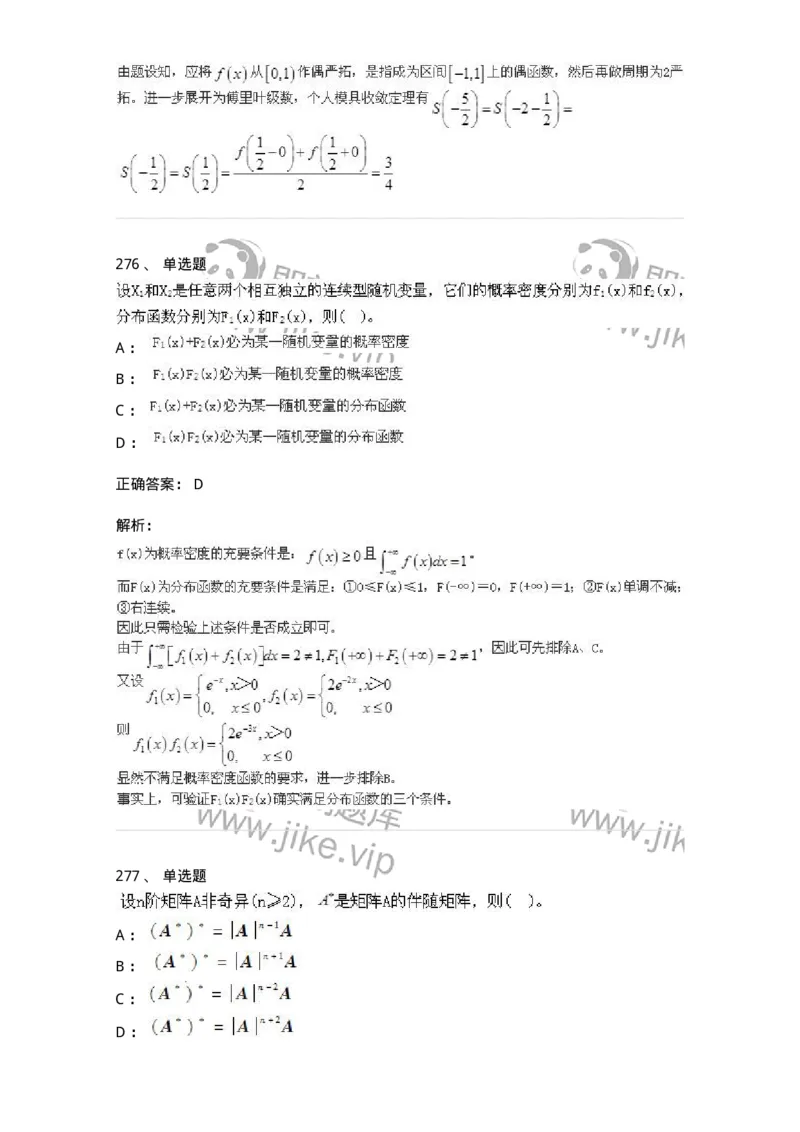 由题设知，应将 f(x) 从[0,1)作偶严拓，是指成为区间[−1,1]上的偶函数，然后再做周期为2严
拓。进一步展开为傅里叶级数，个人模具收敛定理有 S(−5/2)=S(−2−1/2)=
S(−1/2)=S(1/2)=(f(1/2−0)+f(1/2+0))/2=3/4
276 、 单选题
设X₁和X₂是任意两个相互独立的连续型随机变量，它们的概率密度分别为f₁(x)和f₂(x)，
分布函数分别为F₁(x)和F₂(x)，则( )。
A： F₁(x)+F₂(x)必为某一随机变量的概率密度
B： F₁(x)F₂(x)必为某一随机变量的概率密度
C： F₁(x)+F₂(x)必为某一随机变量的分布函数
D： F₁(x)F₂(x)必为某一随机变量的分布函数
正确答案： D
解析：
f(x)为概率密度的充要条件是： f(x)≥0且∫₋∞^{−∞} f(x)dx=1。
而F(x)为分布函数的充要条件是满足：①0≤F(x)≤1，F(-∞)=0，F(+∞)=1；②F(x)单调不减；
③右连续。
因此只需检验上述条件是否成立即可。
由于∫₋∞^{−∞}[f₁(x)+f₂(x)]dx=2≠1,F₁(+∞)+F₂(+∞)=2≠1，因此可先排除A、C。
又设 f₁(x)={e^{−x},x>0 0, x≤0,f₂(x)={2e^{−2x},x>0 0, x≤0
则 f₁(x)f₂(x)={2e^{−3x},x>0 0, x≤0
显然不满足概率密度函数的要求，进一步排除B。
事实上，可验证F₁(x)F₂(x)确实满足分布函数的三个条件。
www.jike.vip
277 、 单选题
设n阶矩阵A非奇异(n≥2)，A*是矩阵A的伴随矩阵，则( )。
A： (A*)* = |A|ⁿ⁻¹A
B： (A*)* = |A|ⁿ⁺¹A
C： (A*)* = |A|ⁿ⁻²A
D： (A*)* = |A|ⁿ⁺²A